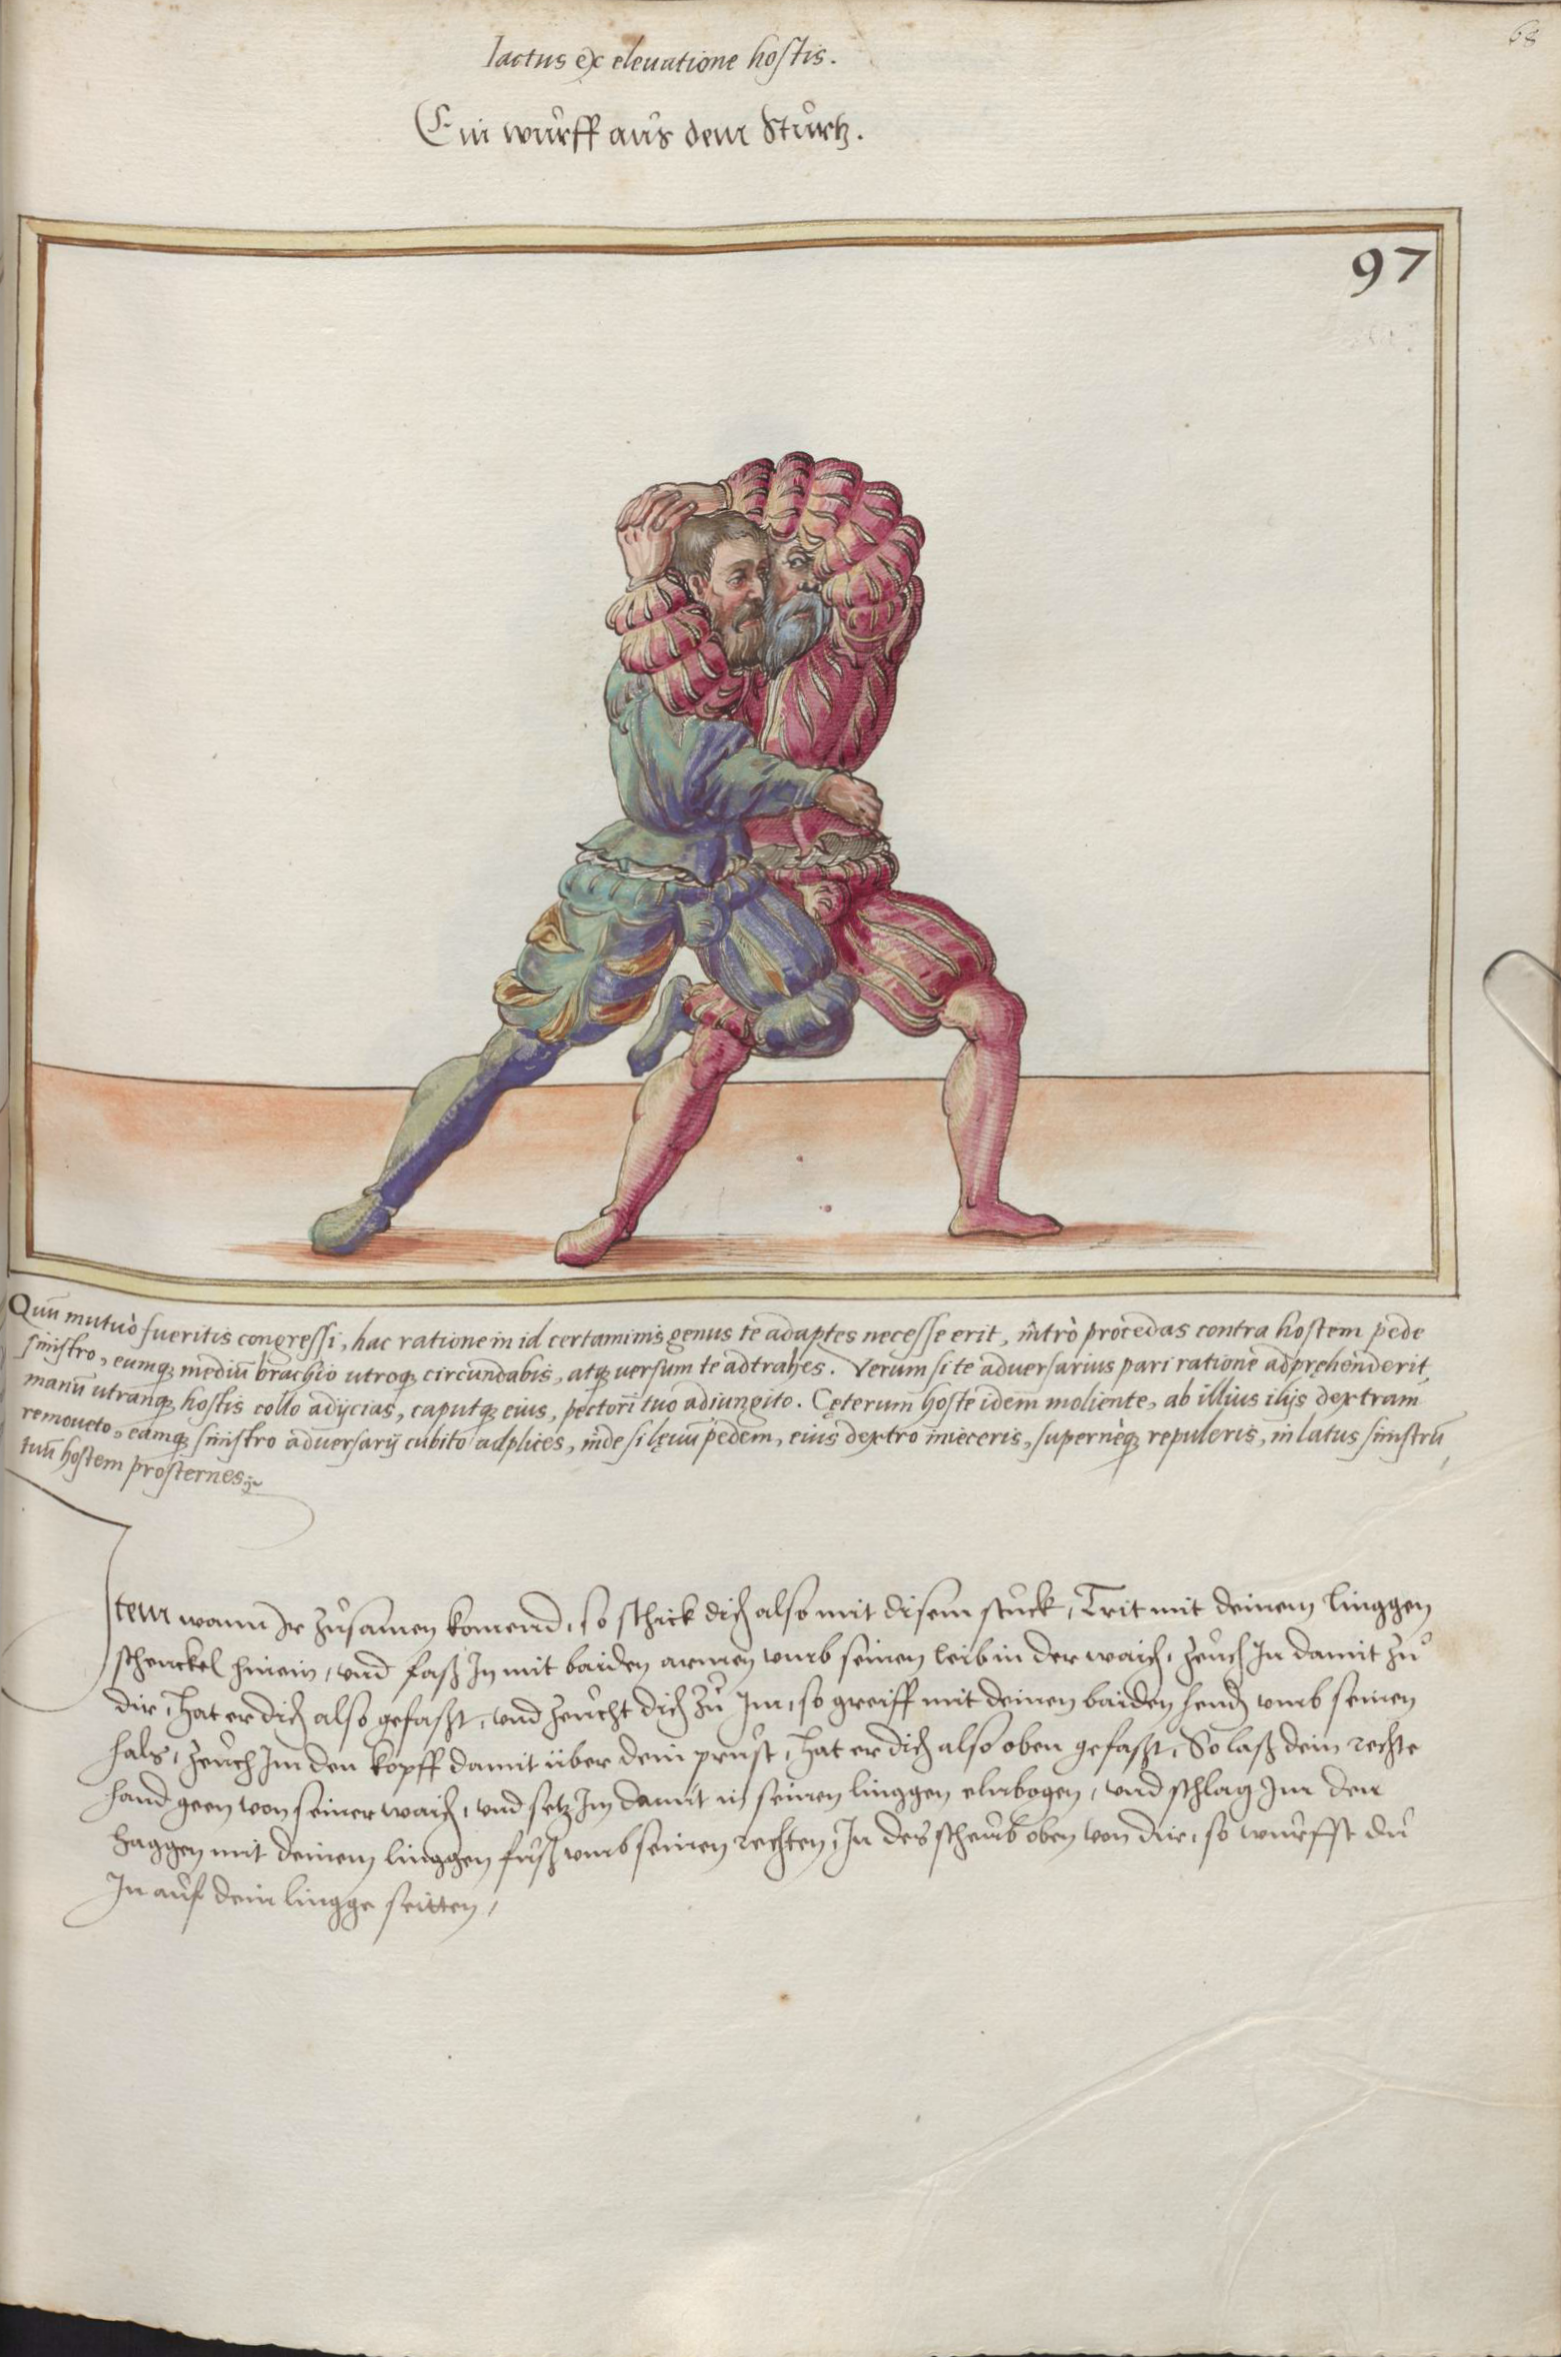 68
Iactus ex eleuatione hoſtis.
Ein wurff aus dem Sturtz.
97
Quū mutuò fueritis congreſſi, hac ratione in id certaminis genus te adaptes neceſſe erit, intrò procedas contra hoſtem pede
ſiniſtro, eumq; mediū brachio utroq; circundabis, atq; uerſum te adtrahes. Verum ſi te aduerſarius pari ratione adpręhenderit,
manū utranq; hoſtis collo adijcias, caputq; eius, pectori tuo adiungito. Cęterum hoſte idem moliente, ab illius ilijs dextram
remoueto, eamq; ſiniſtro aduerſarij cubito adplices, inde ſi lęuū pedem, eius dextro inieceris, ſupernèq; repuleris, in latus ſiniſtrū
tuū hoſtem proſternes.
Item wann Ir zůsamen komend, so schick dich also mit disem stuck, Trit mit deinem linggen
schenckel hinein, und faß In mit baiden armen umb seinen leib in der waich, zeuch In damit zů
dir, Hat er dich also gefaßt, und zeucht dich zů Im, so greiff mit deinen baiden hend umb seinen
hals, zeuch Im den kopff damit über dein prust, Hat er dich also oben gefaßt, So laß dein rechte
hand geen von seiner waich, und setz Im damit in seinen linggen elnbogen, und schlag Im den
haggen mit deinem linggen fuß umb seinen rechten, In des scheub oben von dir, so wurffst du
In auf dein lingge seitten,